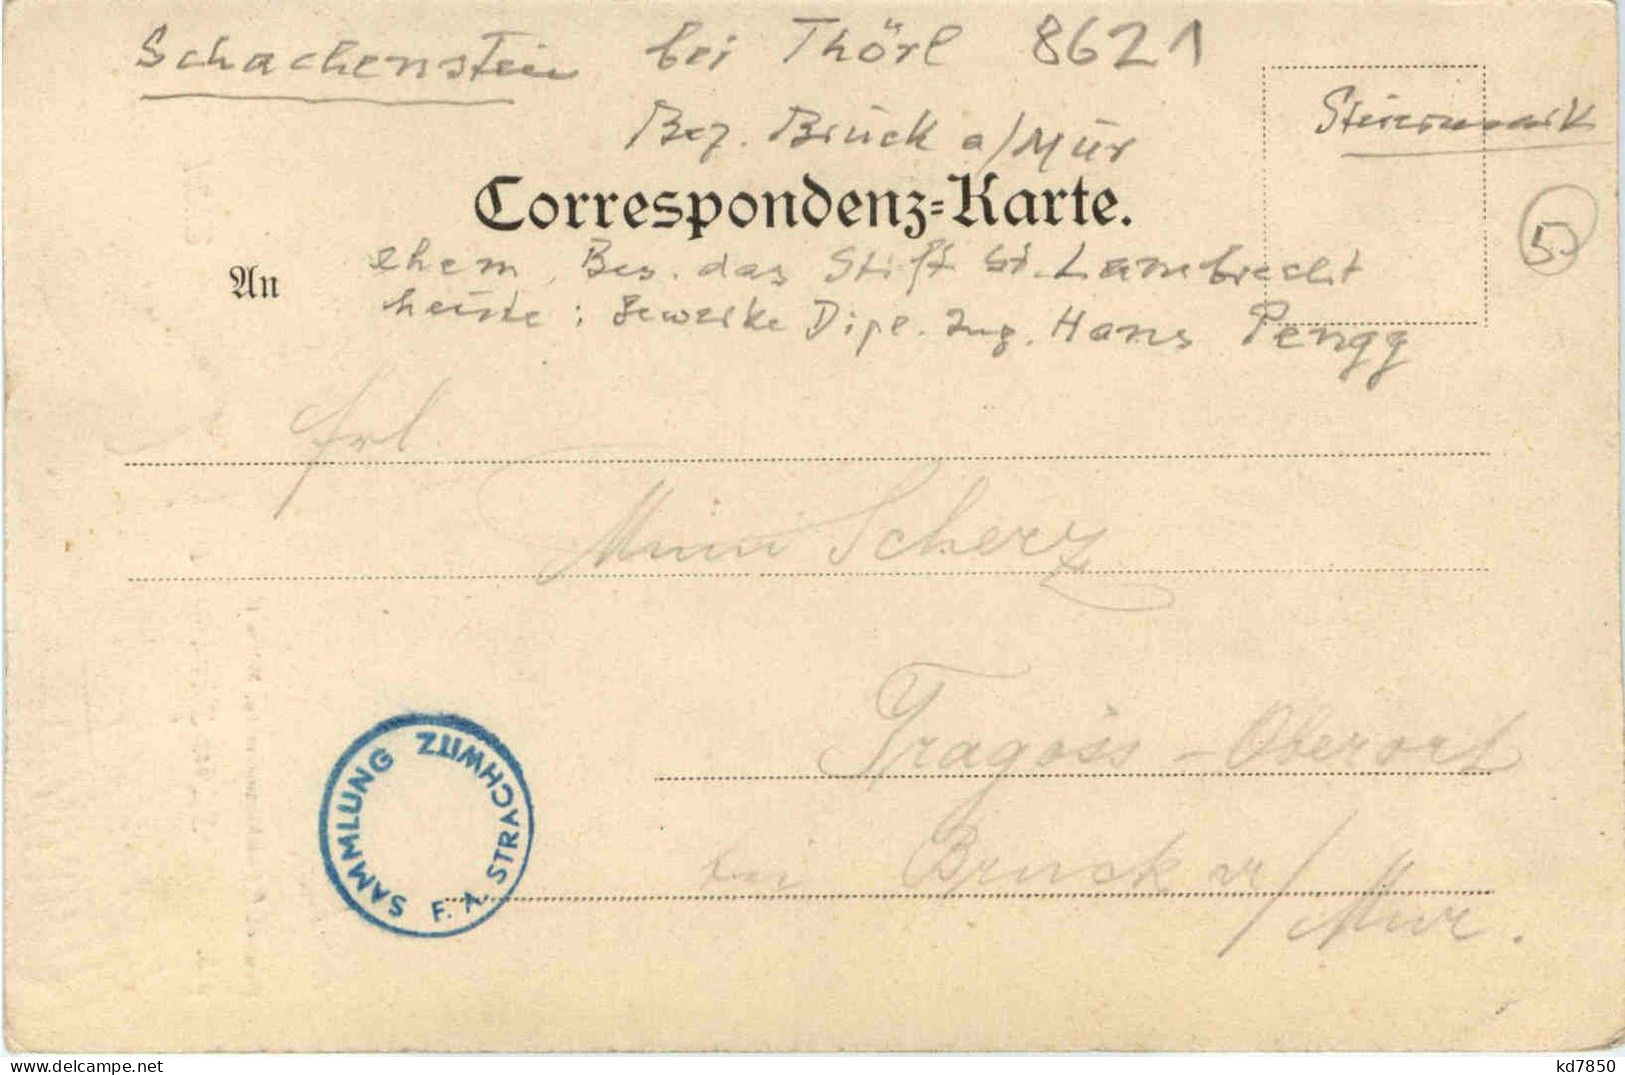 Schachenstein bei Thörl 8621
Steiermark
Bez. Bruck a/Mur
Correspondenz-Karte.
5
An
ehem. Bes. das Stift St. Lambrecht
heute: Gewerke Dipl. Ing. Hans Pengg
Frl.
Mini Scherz
Tragöss-Oberort
bei Bruck a/Mur.
SAMMLUNG F. A. STRACHWITZ
kd7850